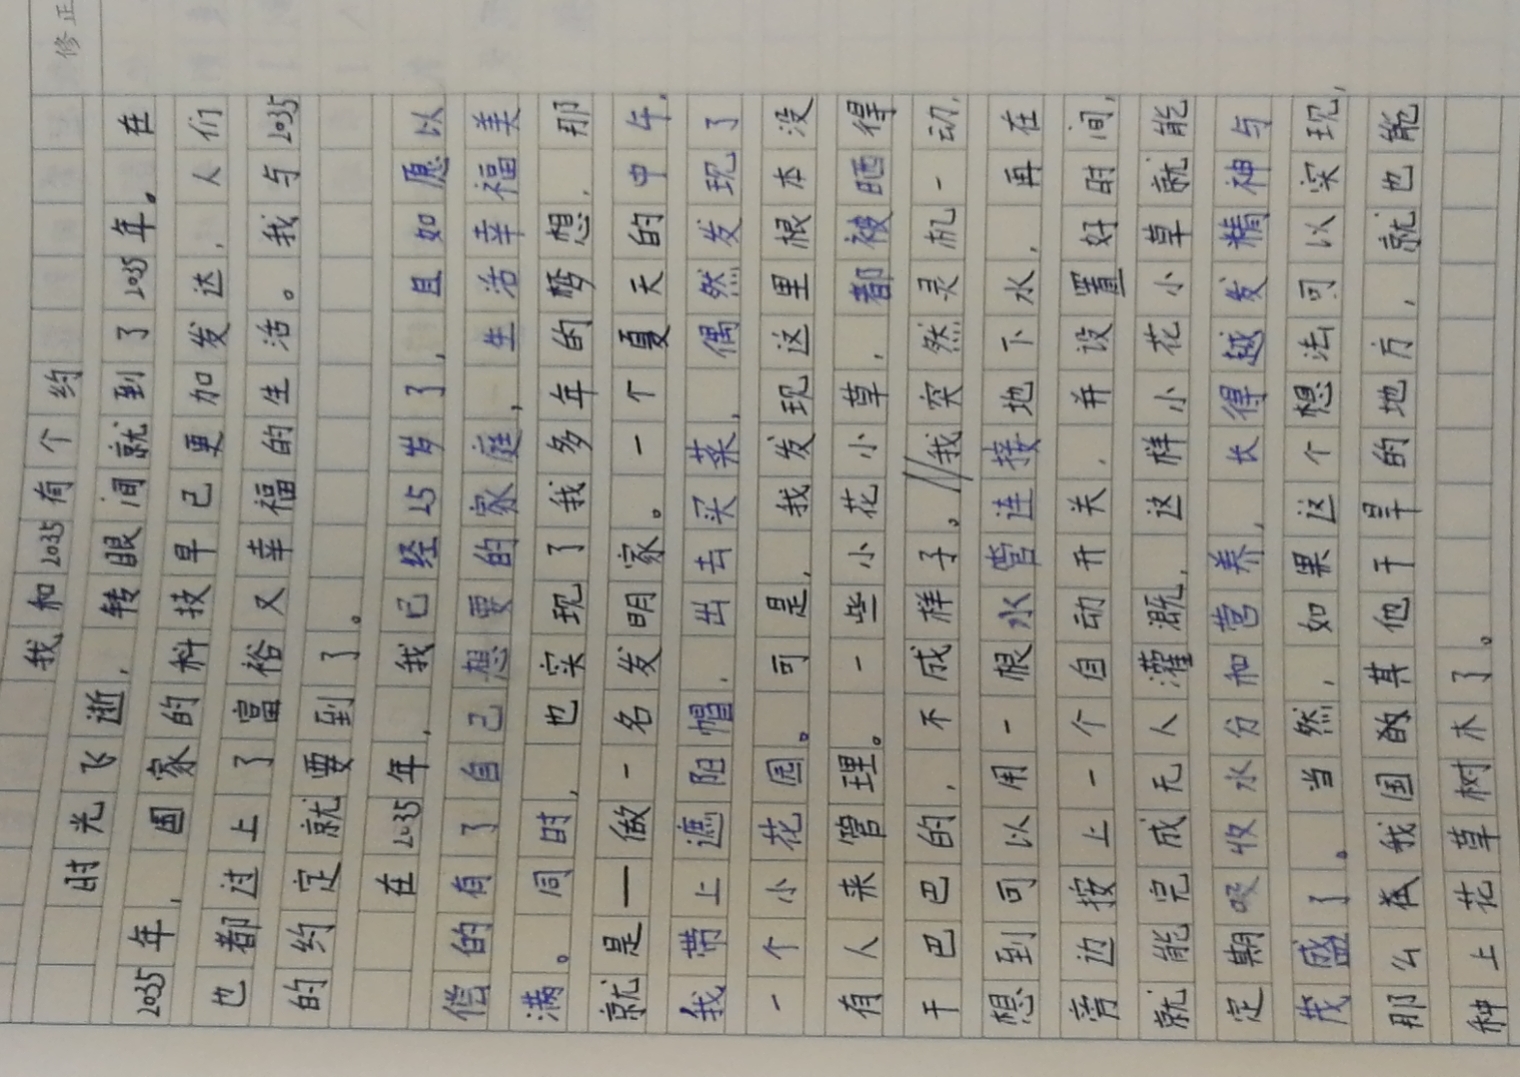 修正
我和2035有个约
时光飞逝，转眼间就到了2035年。在
2035年，国家的科技早已更加发达，人们
也都过上了富裕又幸福的生活。我与2035
的约定就要到了。
在2035年，我已经25岁了，且如愿以
偿的有了自己想要的家庭，生活幸福美
满。同时，也实现了我多年的梦想，那
就是——做一名发明家。一个夏天的中午，
我带上遮阳帽，出去买菜，偶然发现了
一个小花园。可是，我发现这里根本没
有人来管理。一些小花小草，都被晒得
干巴巴的，不成样子。//我突然灵机一动，
想到可以用一根水管连接地下水，再在
旁边按上一个自动开关，并设置好时间，
就能完成无人灌溉，这样小花小草就能
定期吸收水分和营养，长得越发精神与
茂盛了。当然，如果这个想法可以实现，
那么在我国的其他干旱的地方，就也能
种上花草树木了。